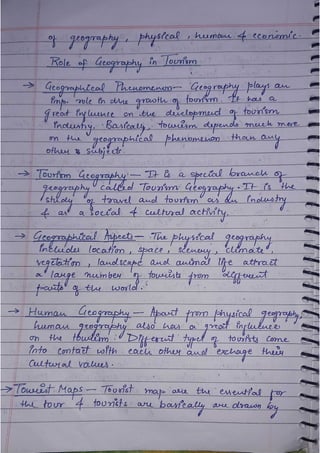 of geography, physical, human & economic.
Role of Geography in Tourism
→ Geographical Phenomenon - Geography plays an
imp. role in the growth of tourism. It has a
great influence on the development of tourism
industry. Basically, tourism depends much more
on the geographical phenomenon than any
other subjects.
→ Tourism Geography - It is a special branch of
geography called Tourism Geography. It is the
study of travel and tourism as an industry
& as a social & cultural activity.
→ Geographical Aspects - The physical geography
includes location, space, scenery, climate,
vegetation, landscape and animal life attract
a large number of tourists from different
parts of the world.
→ Human Geography - Apart from physical geography,
human geography also has a great influence
on the tourism. Different type of tourists come
into contact with each other and exchage their
cultural values.
→ Tourist Maps - Tourist map are the essential for
the tour & tourists are basically are drawn by